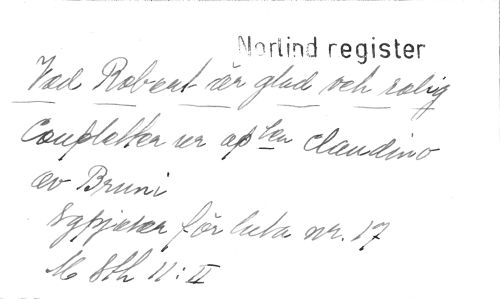 Norlind register
Vad Robert är glad och rolig
Coupletter ur op^tten Claudino
av Bruni
för luta nr. 17
M Sth 11:II